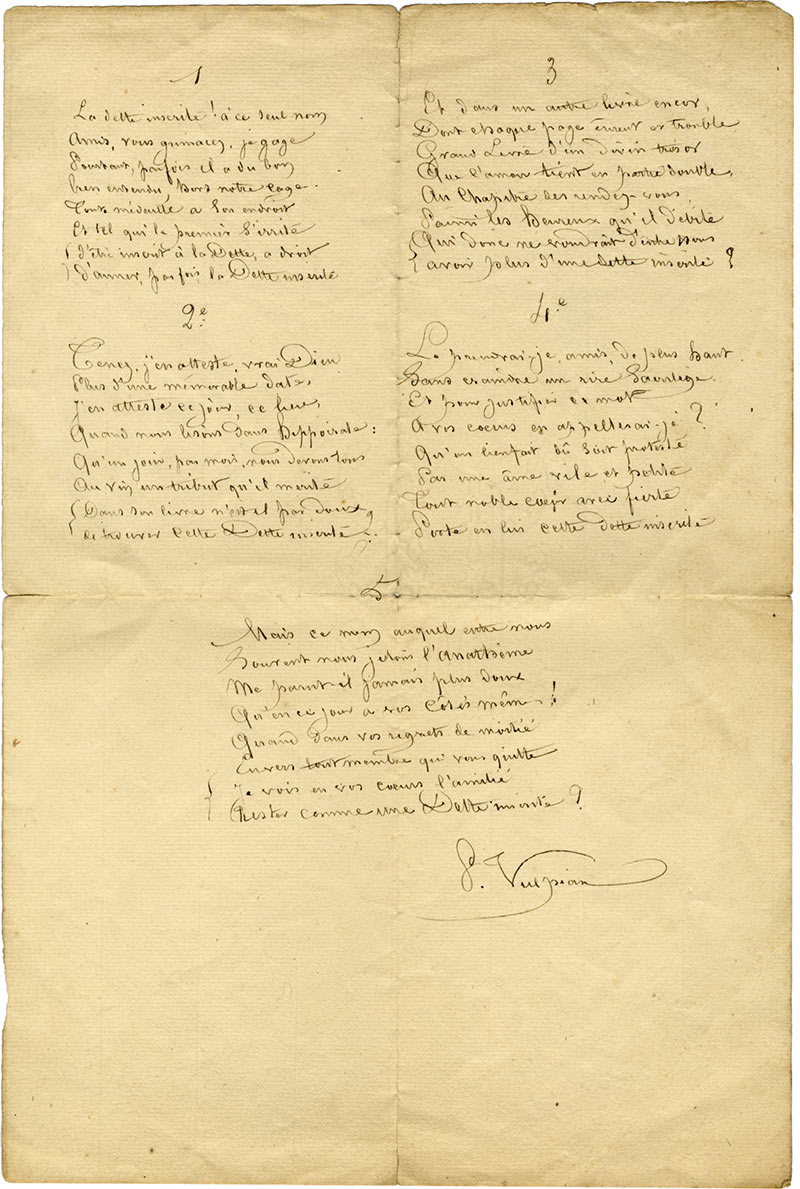 1
La dette inscrite ! à ce seul nom
Amis, vous grimacez, je gage
Pourtant, parfois il a du bon
bien entendu, hors notre cage.
Toute médaille a son endroit
Et tel qui le premier s'irrite
d'être inscrit à la Dette, a droit
d'aimer, parfois, la Dette inscrite
2e
Tenez, j'en atteste, vrai Dieu
Plus d'une mémorable date,
J'en atteste ce jour, ce lieu,
Quand nous lisons dans Hippocrate :
Qu'un jour, par mois, nous devons tous
Au vin un tribut qu'il mérite
Dans son livre n'est-il pas doux
de trouver cette Dette inscrite ?
3
Et dans un autre livre encor,
Dont chaque page émeut et trouble
Grand Livre d'un divin trésor
Que l'amour tient en partie double,
Au Chapitre des rendez-vous,
Parmi les heureux qu'il débite
Qui donc ne voudrait d'entre nous
avoir plus d'une Dette inscrite ?
4e
Le prendrai-je, amis, de plus haut
Sans craindre un rire sacrilège
Et pour justifier ce mot
A vos coeurs en appellerai-je ?
Qu'un bienfait dû soit protesté
Par une âme vile et petite
Tout noble coeur avec fierté
Porte en lui cette dette inscrite
5e
Mais ce nom auquel entre nous
Souvent nous jetons l'anathème
Me parut-il jamais plus doux
Qu'en ce jour à vos côtés même !
Quand dans vos regrets de moitié
Envers tout membre qui vous quitte
Je vois en vos coeurs l'amitié
Rester comme une Dette inscrite ?
Vulpian